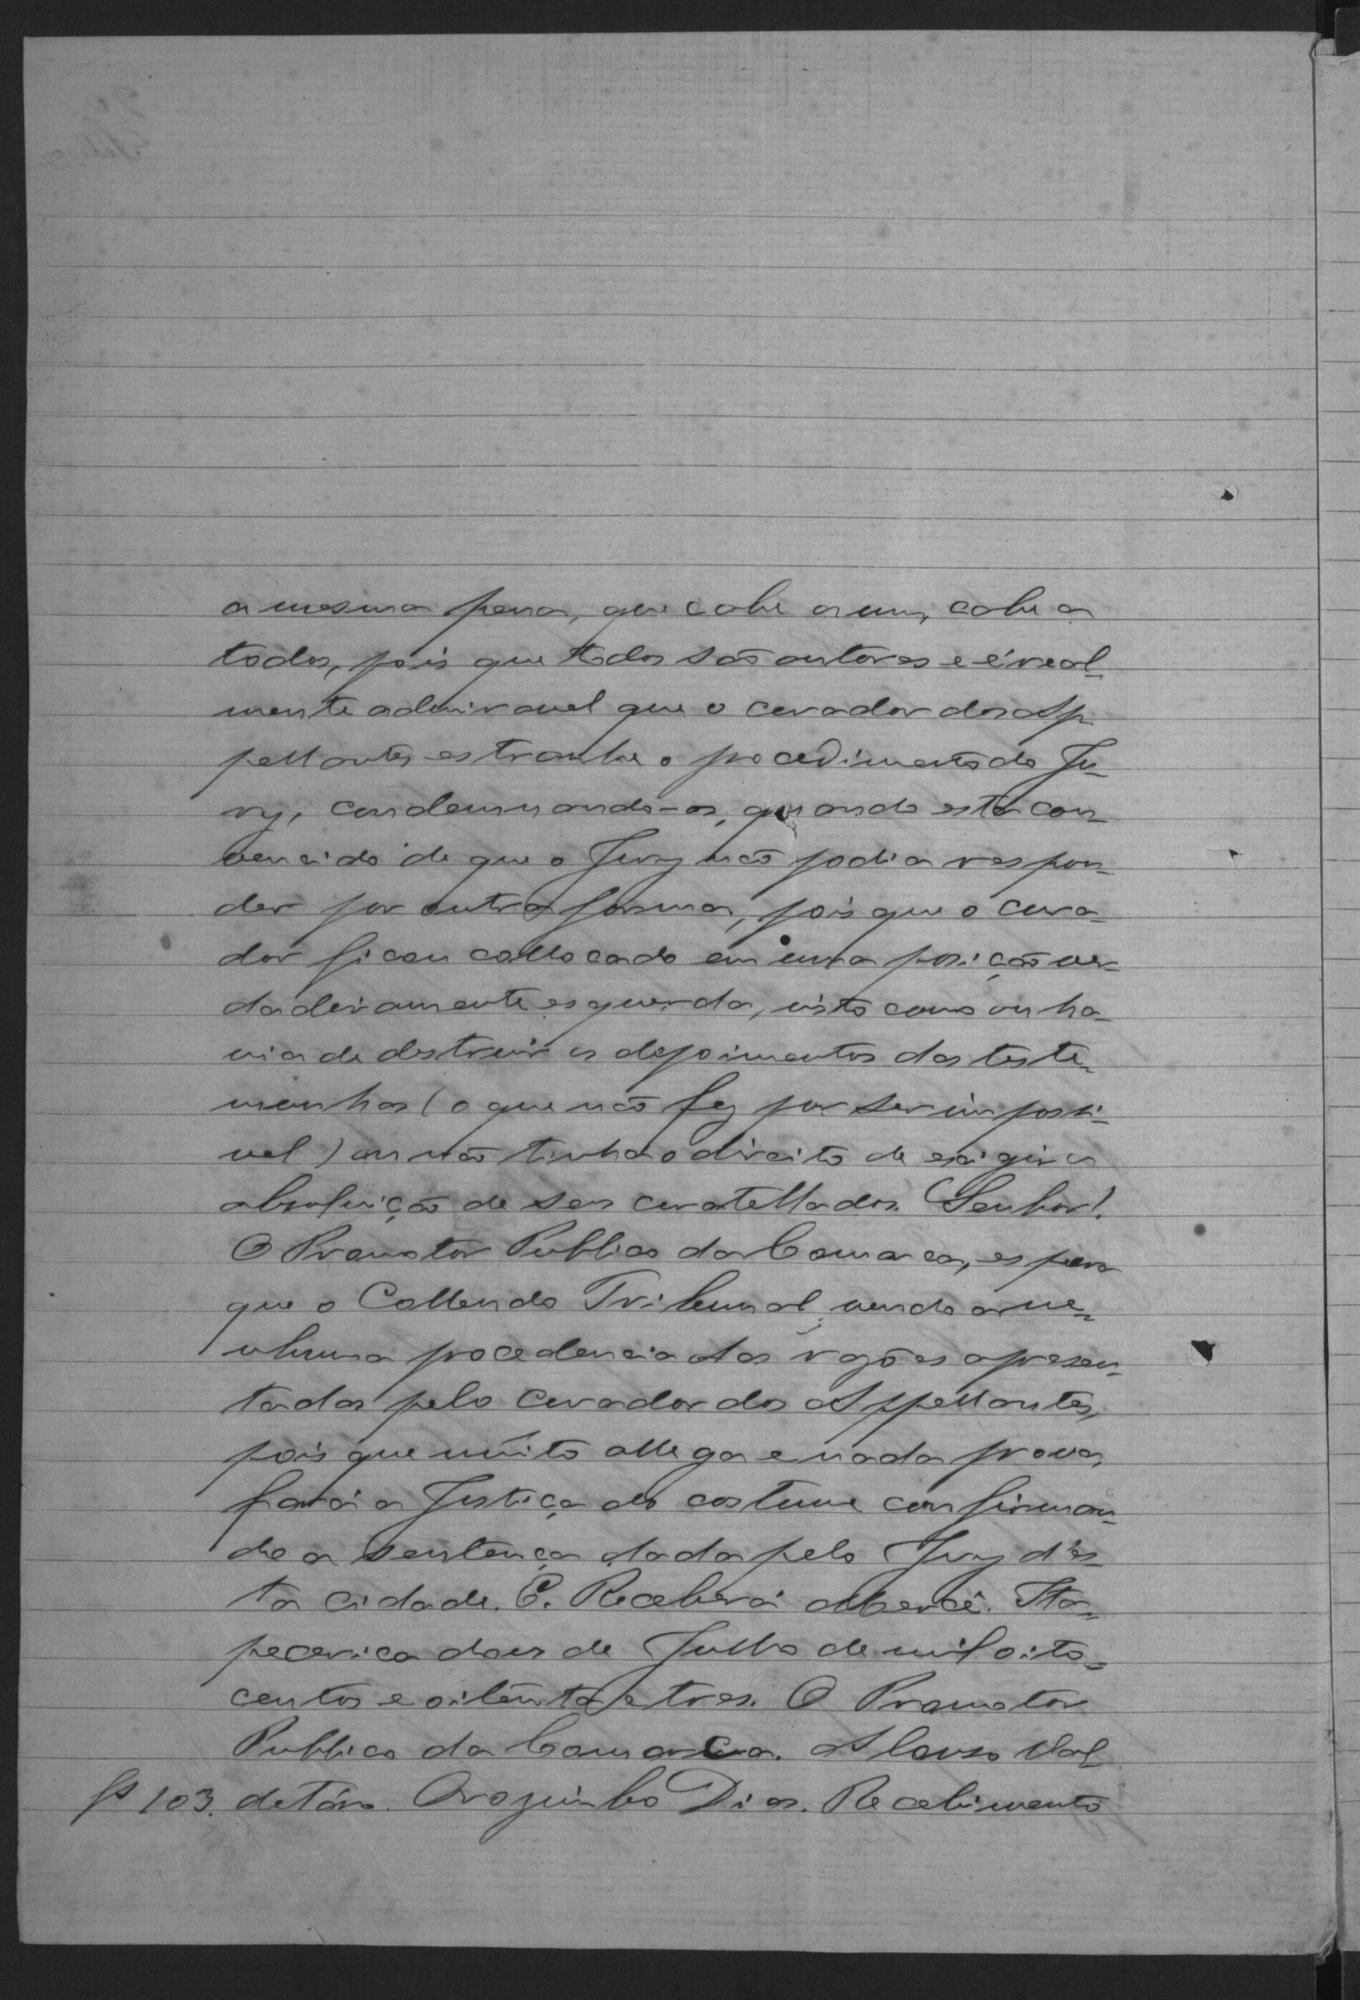 a mesma pena, que cabe a um, cabe a
todos, pois que todos são autores e é real-
mente admiravel que o curador dos Ap-
pellantes estranhe o procedimento do Ju-
ry, condemnando-os, quando está con-
vencido de que o Jury não podia respon-
der por outra forma, pois que o cura-
dor ficou collocado em uma posição ver-
dadeiramente esquerda, visto como ou ha-
via de destruir os depoimentos das teste-
munhas (o que não fez por ser impossi-
vel) ou não tinha o direito de exigir a
absolvição de seus curatellados. Senhor!
O Promotor Publico da Comarca, espera
que o Collendo Tribunal, vendo a ne-
nhuma procedencia das rasões apresen-
tadas pelo curador dos Appellantes,
pois que muito allega e nada prova,
fará a Justiça do costume confirman-
do a sentença dada pelo Jury d'es-
ta cidade. E. Receberá Mercê. Ita-
pecerica dois de Julho de mil oito-
centos e oitenta e tres. O Promotor
Publico da Comarca.
fs 103. detáro. Orozimbo Dias. Recebimento